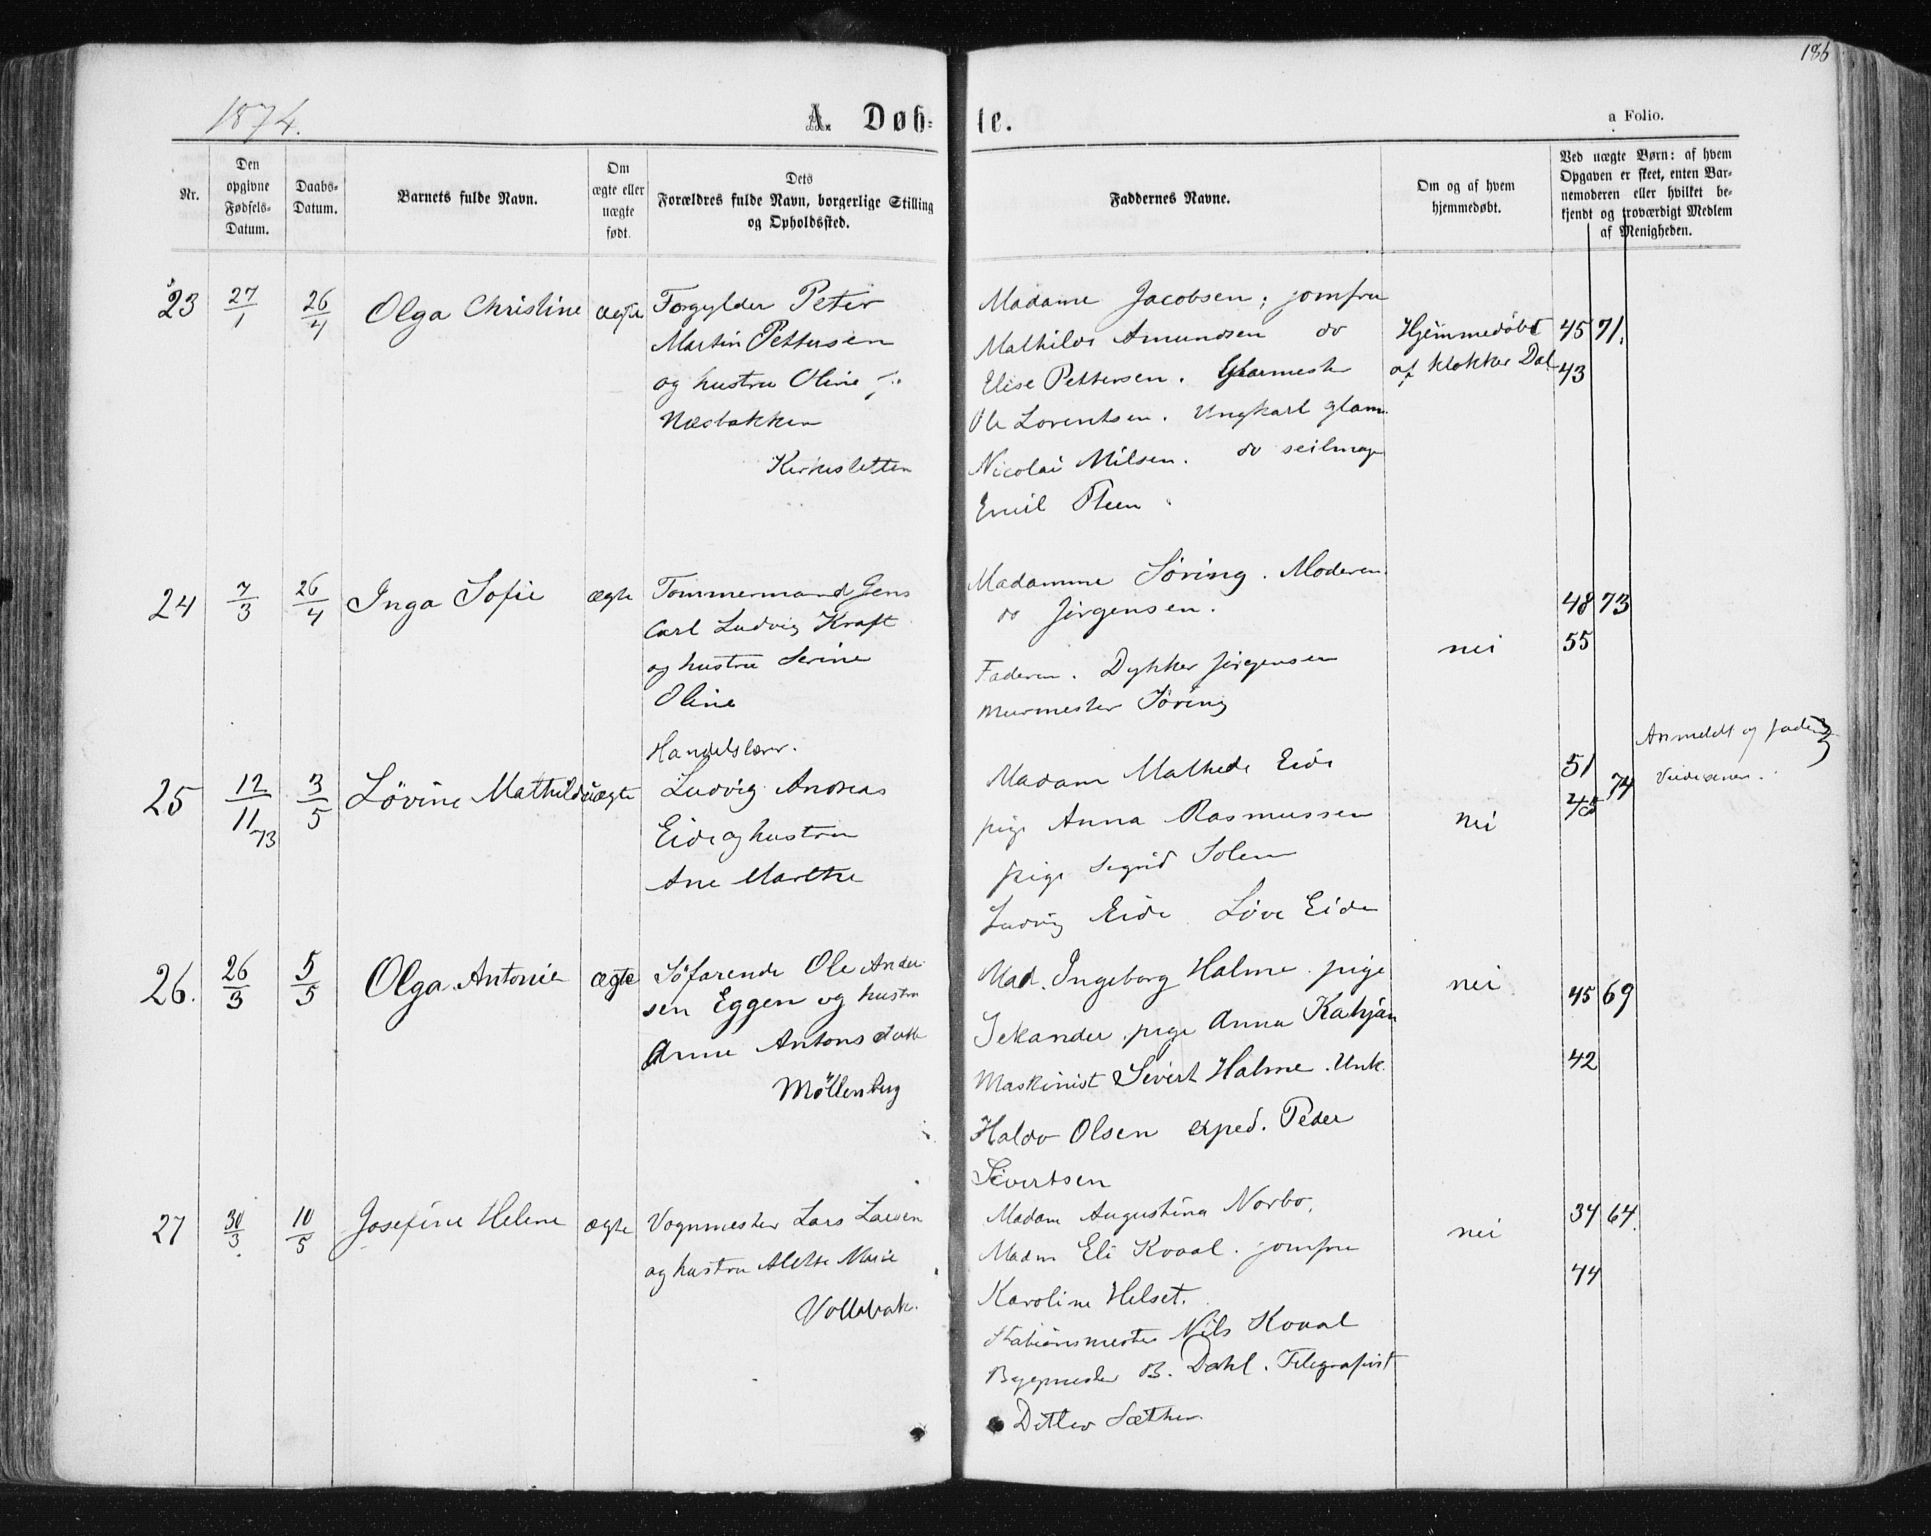 186
1874.
A. Døb-te.
a Folio.
Nr.
Den opgivne Fødsels-Datum.
Daabs-Datum.
Barnets fulde Navn.
Om ægte eller uægte født.
Dets Forældres fulde Navn, borgerlige Stilling og Opholdssted.
Faddernes Navne.
Om og af hvem hjemmedøbt.
Ved uægte Børn: af hvem Opgaven er skeet, enten Barnemoderen eller hvilket bekjendt og troværdigt Medlem af Menigheden.
23 27/1 26/4 Olga Christine ægte
Forgylder Peter
Martin Pettersen
og hustru Oline f.
Næsbakken
Kirkesletten
Madame Jacobsen; jomfru
Mathilde Amundsen do
Elise Pettersen. Glarmester
Ole Lorentsen. Ungkarl glarm.
Nicolai Milsen. do seilmag
Emil
Hjemmedøbt
af klokker Dal
45 71.
43
24 7/3 26/4 Inga Sofie ægte
Tømmermand Jens
Carl Ludvig Kraft
og hustru Serine
Oline
Madamme Søring. Moderen.
do Jørgensen.
Faderen. Dykker Jørgensen
Murmester Søring
nei
48 73
55
25 12/11 73 3/5 Løvine Mathilde ægte
Handelsborer.
Ludvig Andreas
Eide og hustru
Ane Marthe
Madam Mathede Eide
pige Anna Rasmussen
pige Sigrid Solem
Ludvig Eide Løve Eide
nei
51
74
45
Anmeldt og
26. 26/3 5/5 Olga Antonie ægte
Søfarende Ole Ander
sen Eggen og hustru
Anne Antons datt
Möllenberg
Mad. Ingeborg Halme. pige
pige Anna
Maskinist Sivert Halme. Unk.
Haldo Olsen exped. Peder
Sivertsen
nei
45 69
42
27 30/3 10/5 Josefine Helene ægte
Vognmester Lars Larsen
og hustru Alette Marie
Vollabak.
Madam Augustina Norbo.
Madm Eli Kvaal. jomfru
Karoline Helset.
Stationsmester Nils Kvaal
Bygmester B. Dahl. Telegrafist
Ditlev Sæther
nei
34 64.
44